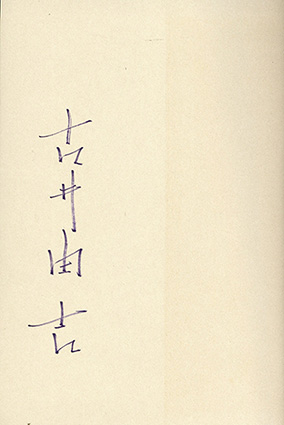 古井由吉